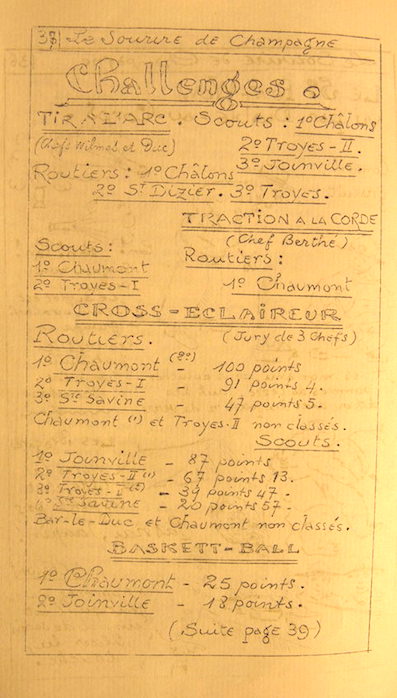 38 Le Sourire de Champagne
Challenges.
TIR A L'ARC : Scouts : 1º Châlons
(Chefs Wilmes et Duc) 2º Troyes-II.
3º Joinville.
Routiers : 1º Châlons
2º St Dizier. 3º Troyes.
TRACTION A LA CORDE
(Chef Berthe)
Scouts : Routiers :
1º Chaumont
2º Troyes-I 1º Chaumont
CROSS-ECLAIREUR
Routiers. (Jury de 3 Chefs)
1º Chaumont - 100 points
2º Troyes-I - 91 points 4.
3º Ste Savine - 47 points 5.
Chaumont (1) et Troyes-II non classés.
Scouts.
1º Joinville - 87 points
2º Troyes-II (1) - 67 points 13.
3º Troyes-II - 39 points 47.
4º Ste Savine - 20 points 57.
Bar-le-Duc et Chaumont non classés.
BASKETT-BALL
1º Chaumont - 25 points.
2º Joinville - 18 points.
(Suite page 39)